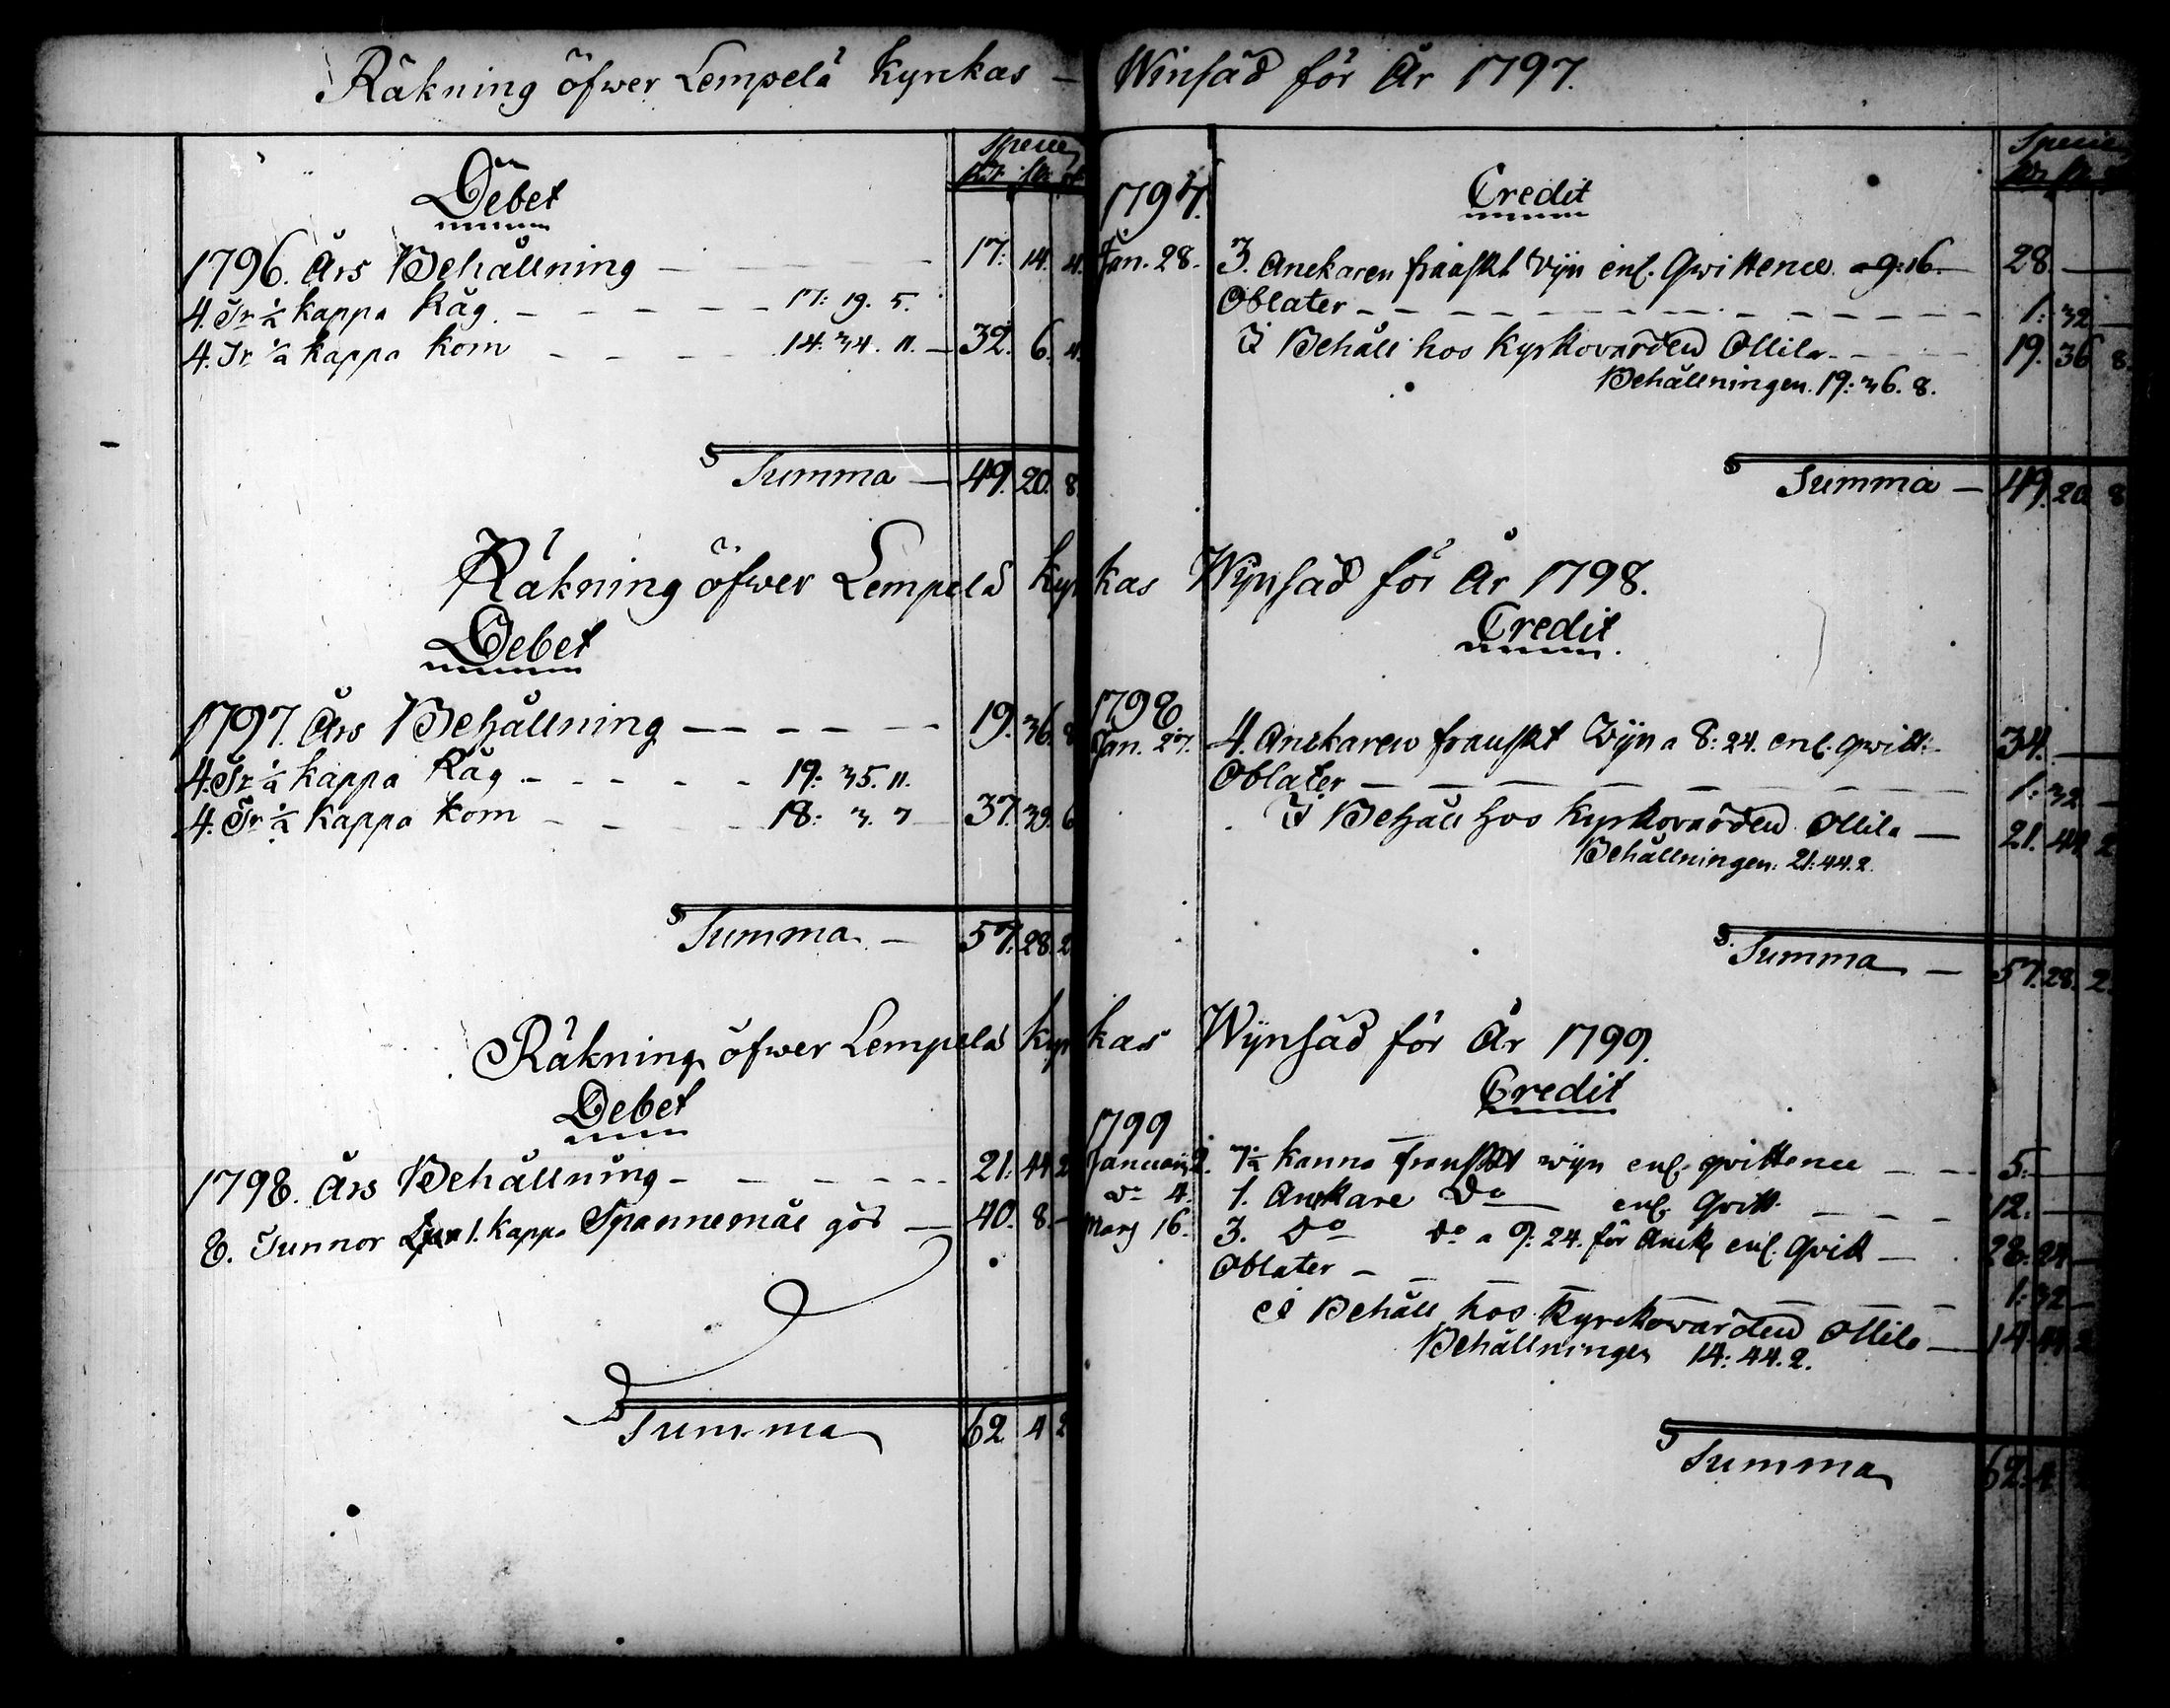 Räkning öfwer Lempelä Kyrckas – Winsäd för År 1797.
Debet
Specie
Rd. sk. rst.
1796. Års Behållning – – – 17: 14. 4.
4. Tr ½ kappa Råg. – – – – – 17: 19. 5.
4. Tr ½ kappa korn – – – – 14. 34. 11. – 32. 6. 4.
Summa – 49. 20. 8.
Credit
Specie
1797.
Jan. 28. 3. Anckaren franskt Wijn enl. Qwittence a 9:16. – 28. –
Oblater – – – – – – – 1: 32 –
I Behåll hos Kyrkovärden Ollila – – – 19. 36 8.
Behållningen. 19: 36. 8.
Summa – 49. 20 8
Räkning öfwer Lempelä Kyrkas Wijnsäd för År 1798.
Debet
1797. Års Behållning – – – – – 19. 36. 8
4. Tr ½ kappa Råg – – – – – 19: 35. 11.
4. Tr ½ kappa korn – – – 18: 3. 7 – 37. 39. 6
Summa. – 57. 28. 2
Credit
1798
Jan. 27. 4. Anckaren franskt Wijn a 8: 24. enl. qwitt: 34. –
Oblater – – – – – – 1: 32 –
I Behåll hos Kyrkovärden Ollila – 21. 44. 2
Behållningen: 21: 44. 2.
Summa – 57. 28. 2.
Räkning öfwer Lempelä Kyrkas Wijnsäd för År 1799.
Debet
1798. Års Behållning – – – – – 21: 44 2
8. Tunnor 1. kappa Spannemål gör – 40. 8. –
Summa 62 4 2
Credit
1799
Januarij 2. 7½ kanna franskt wijn enl. qvittence – – 5: –
Do 4. 1. Anckare Do – enl. Qvitt. – – – 12. –
Marz 16. 3. Do Do a 9: 24. för Anck. enl. Qvitt – 28. 24 –
Oblater – – – – – – 1: 32 –
i Behåll hos Kyrckowärden Ollila – 14 44 2
Behållningen 14: 44. 2.
Summa 62. 4